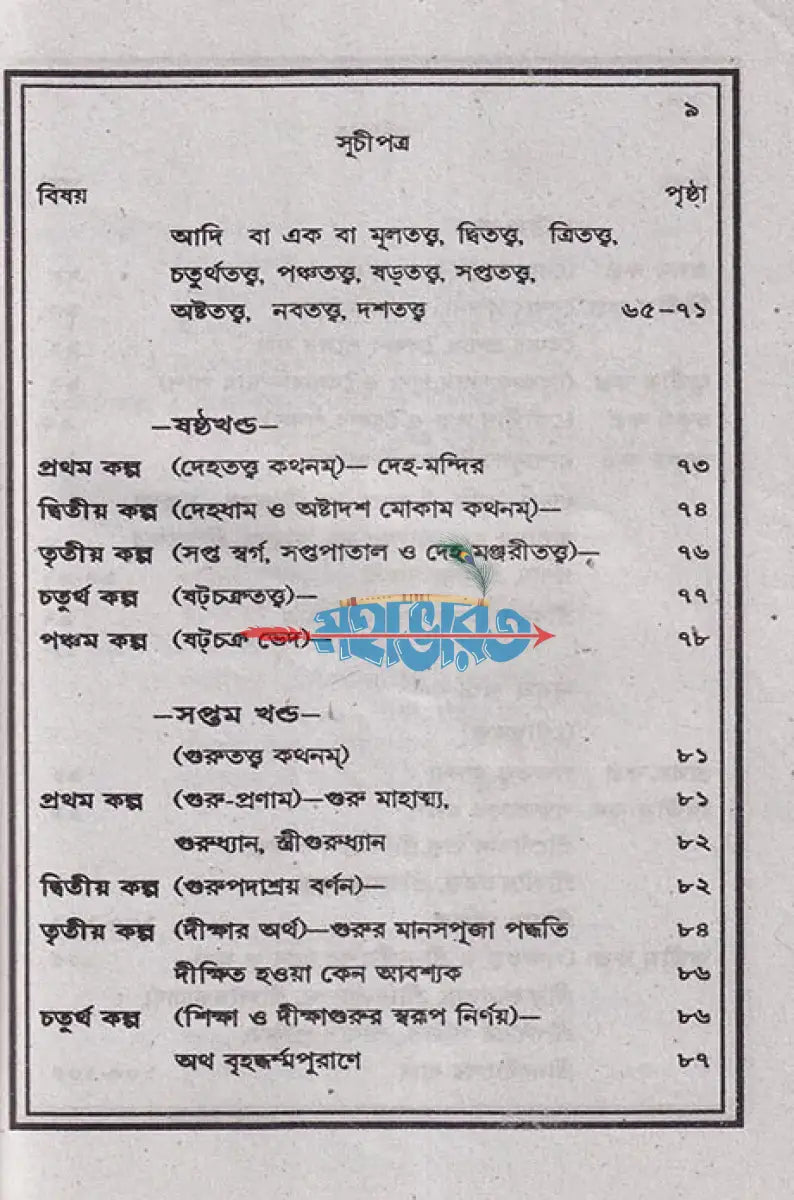 ৯
সূচীপত্র
বিষয় পৃষ্ঠা
আদি বা এক বা মূলতত্ত্ব, দ্বিতত্ত্ব, ত্রিতত্ত্ব,
চতুর্থতত্ত্ব, পঞ্চতত্ত্ব, ষড়তত্ত্ব, সপ্ততত্ত্ব,
অষ্টতত্ত্ব, নবতত্ত্ব, দশতত্ত্ব ৬৫–৭১
–ষষ্ঠখণ্ড–
প্রথম কল্প (দেহতত্ত্ব কথনম্)– দেহ-মন্দির ৭৩
দ্বিতীয় কল্প (দেহধাম ও অষ্টাদশ মোকাম কথনম্)– ৭৪
তৃতীয় কল্প (সপ্ত স্বর্গ, সপ্তপাতাল ও দেহ মঞ্জরীতত্ত্ব)– ৭৬
চতুর্থ কল্প (ষট্‌চক্রতত্ত্ব)– ৭৭
পঞ্চম কল্প (ষট্‌চক্র ভেদ)– ৭৮
মহাভারত
–সপ্তম খণ্ড–
(গুরুতত্ত্ব কথনম্) ৮১
প্রথম কল্প (গুরু-প্রণাম)–গুরু মাহাত্ম্য, ৮১
গুরুধ্যান, স্ত্রীগুরুধ্যান ৮২
দ্বিতীয় কল্প (গুরুপদাশ্রয় বর্ণন)– ৮২
তৃতীয় কল্প (দীক্ষার অর্থ)–গুরুর মানসপূজা পদ্ধতি ৮৪
দীক্ষিত হওয়া কেন আবশ্যক ৮৬
চতুর্থ কল্প (শিক্ষা ও দীক্ষাগুরুর স্বরূপ নির্ণয়)– ৮৬
অথ বৃহদ্ধর্ম্মপুরাণে ৮৭